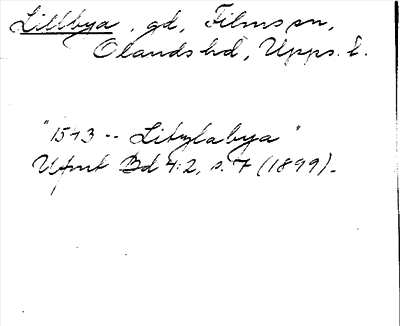 Lillbya, gd, Films sn,
Olands hd, Upps. l.
"1543 -- Litzlabya"
Ufmt Bd 4:2, s. 7 (1899).